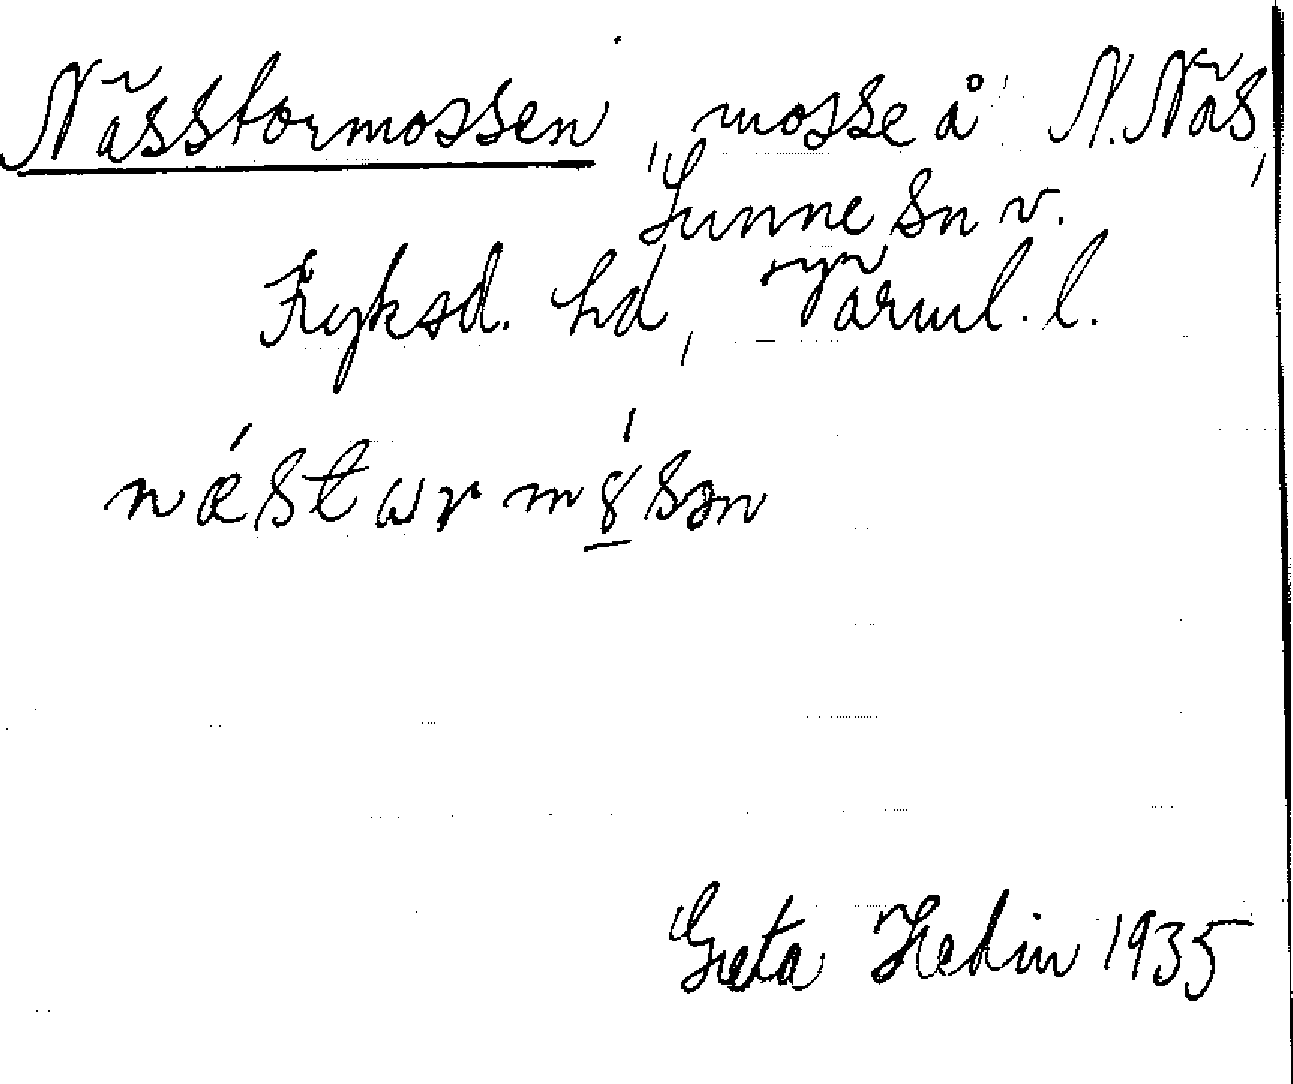 Nässtormossen, mosse å N. Näs,
Sunne sn v.
Fryksd. hd, Värml. l.
næ´stωrmó̱sən
Greta Hedin 1935